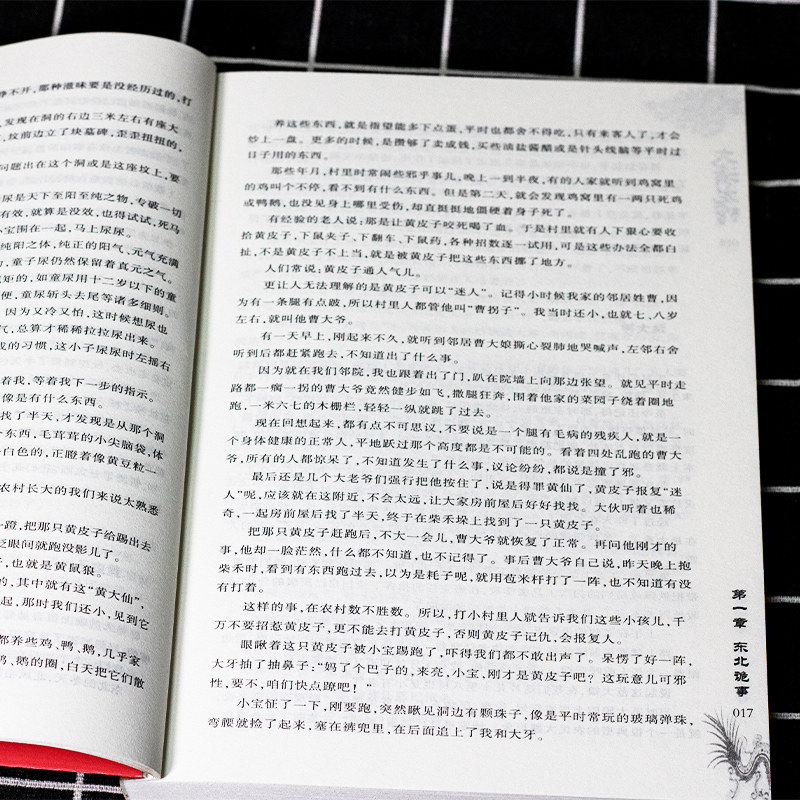 睁不开，那种滋味要是没经历过的，打
发现在洞的右边三米左右有座大
，坟前边立了块墓碑，歪歪扭扭的，
问题出在这个洞或是这座坟上，要
尿是天下至阳至纯之物，专破一切
有效，就算是没效，也得试试，死马
小宝围在一起，马上尿尿。
纯阳之体，纯正的阳气、元气充满
，童子尿仍然保留着真元之气。
规矩的，如童尿用十二岁以下的童
便，童尿斩头去尾等诸多细则。
因为又冷又怕，这时候想尿也
气，总算才稀稀拉拉尿出来。
我的习惯，这小子尿尿时左摇右
着我，等着我下一步的指示。
像是有什么东西。
找了半天，才发现是从那个洞
东西，毛茸茸的小尖脑袋，体
白色的，正瞪着像黄豆粒一
农村长大的我们来说太熟悉
一蹬，把那只黄皮子给踢出去
眨眼间就跑没影儿了。
，也就是黄鼠狼。
的，其中就有这“黄大仙”，
起，那时我们还小，见到它
都养些鸡、鸭、鹅，几乎家
鸡、鹅的圈，白天把它们散
养这些东西，就是指望能多下点蛋，平时也都舍不得吃，只有来客人了，才会
炒上一盘。更多的时候，是攒够了卖成钱，买些油盐酱醋或是针头线脑等平时过
日子用的东西。
那些年月，村里时常闹些邪乎事儿，晚上一到半夜，有的人家就听到鸡窝里
的鸡叫个不停，看不到有什么东西。但是第二天，就会发现鸡窝里有一两只死鸡
或鸭鹅，也没见身上哪里受伤，却直挺挺地僵硬着身子死了。
有经验的老人说：那是让黄皮子咬死喝了血。于是村里就有人下狠心要收
拾黄皮子，下鼠夹子、下翻车、下鼠药，各种招数逐一试用，可是这些办法全都白
扯，不是黄皮子不上当，就是被黄皮子把这些东西挪了地方。
人们常说：黄皮子通人气儿。
更让人无法理解的是黄皮子可以“迷人”。记得小时候我家的邻居姓曹，因
为有一条腿有点跛，所以村里人都管他叫“曹拐子”。我当时还小，也就七、八岁
左右，就叫他曹大爷。
有一天早上，刚起来不久，就听到邻居曹大娘撕心裂肺地哭喊声，左邻右舍
听到后都赶紧跑去，不知道出了什么事。
因为就在我们邻院，我也跟着出了门，趴在院墙上向那边张望。就见平时走
路都一瘸一拐的曹大爷竟然健步如飞，撒腿狂奔，围着他家的菜园子绕着圈地
跑，一米六七的木栅栏，轻轻一纵就跳了过去。
现在回想起来，都有点不可思议，不要说是一个腿有毛病的残疾人，就是一
个身体健康的正常人，平地跃过那个高度都是不可能的。看着四处乱跑的曹大
爷，所有的人都惊呆了，不知道发生了什么事，议论纷纷，都说是撞了邪。
最后还是几个大老爷们强行把他按住了，说是得罪黄仙了，黄皮子报复“迷
人”呢，应该就在这附近，不会太远，让大家房前屋后好好找找。大伙听着也稀
奇，一起房前屋后找了半天，终于在柴禾垛上找到了一只黄皮子。
把那只黄皮子赶跑后，不大一会儿，曹大爷就恢复了正常。再问他刚才的
事，他却一脸茫然，什么都不知道，也不记得了。事后曹大爷自己说，昨天晚上抱
柴禾时，看到有东西跑过去，以为是耗子呢，就用苞米杆打了一阵，也不知道有没
有打着。
这样的事，在农村数不胜数。所以，打小村里人就告诉我们这些小孩儿，千
万不要招惹黄皮子，更不能去打黄皮子，否则黄皮子记仇，会报复人。
眼瞅着这只黄皮子被小宝踢跑了，吓得我们都不敢出声了。呆愣了好一阵，
大牙抽了抽鼻子：“妈了个巴子的，来亮，小宝，刚才是黄皮子吧？这玩意儿可邪
性，要不，咱们快点蹽吧！”
小宝怔了一下，刚要跑，突然瞅见洞边有颗珠子，像是平时常玩的玻璃弹珠，
弯腰就捡了起来，塞在裤兜里，在后面追上了我和大牙。
第一章 东北诡事
017